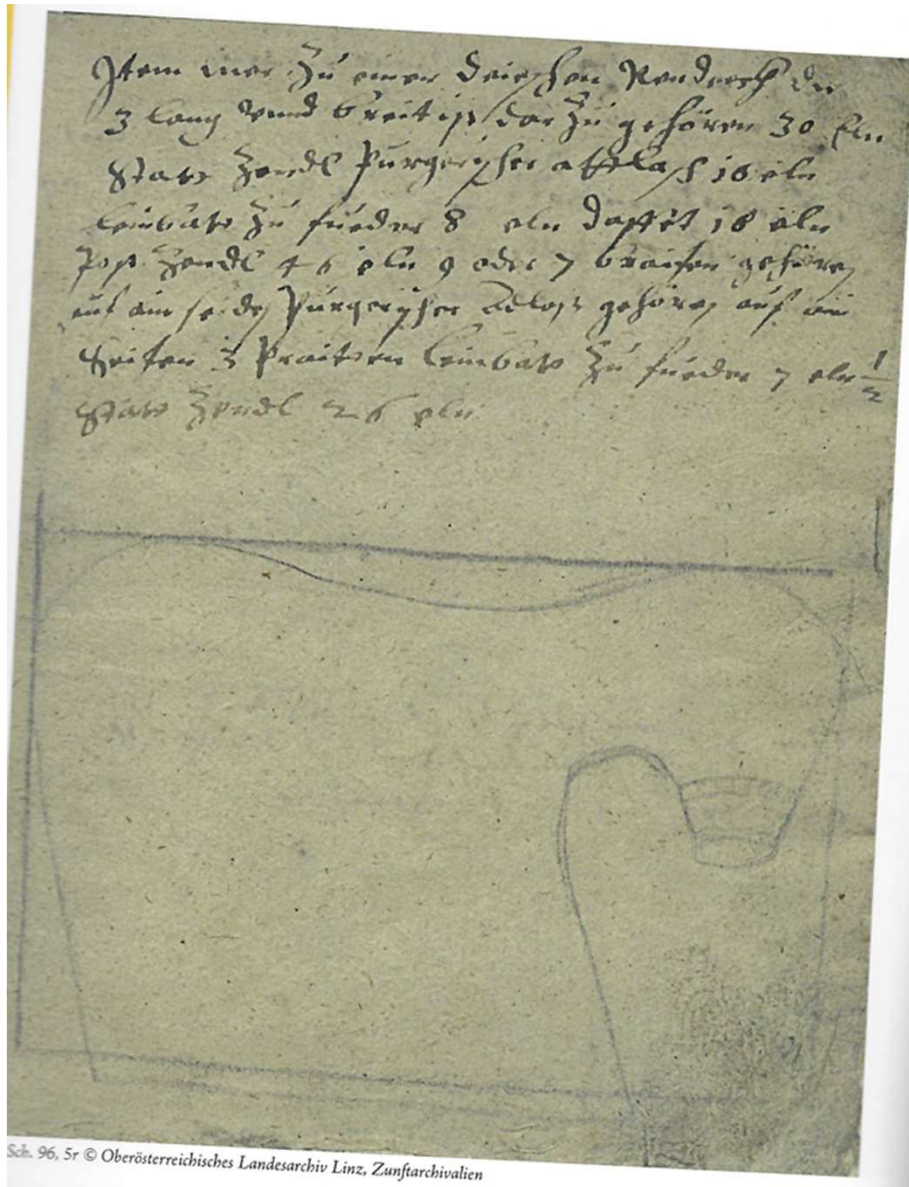 Item mer Zu einer Deischen Rendeckh die
3 lang vnnd breit ist dar Zu gehören 30 Eln
Statt Zendl Purgerischer attlaß 18 eln
leinbatt Zu fueder 8 eln Daffet 18 eln
Zendl 4 6 eln 9 oder 7 braiten gehören
auf ain seiden Purgerischer Adlaß gehören auf ain
Seiten 3 Praitten leinbatt Zu fueder 7 eln 1/2
Statt Zendl 26 eln
Sch. 96, 5r © Oberösterreichisches Landesarchiv Linz, Zunftarchivalien